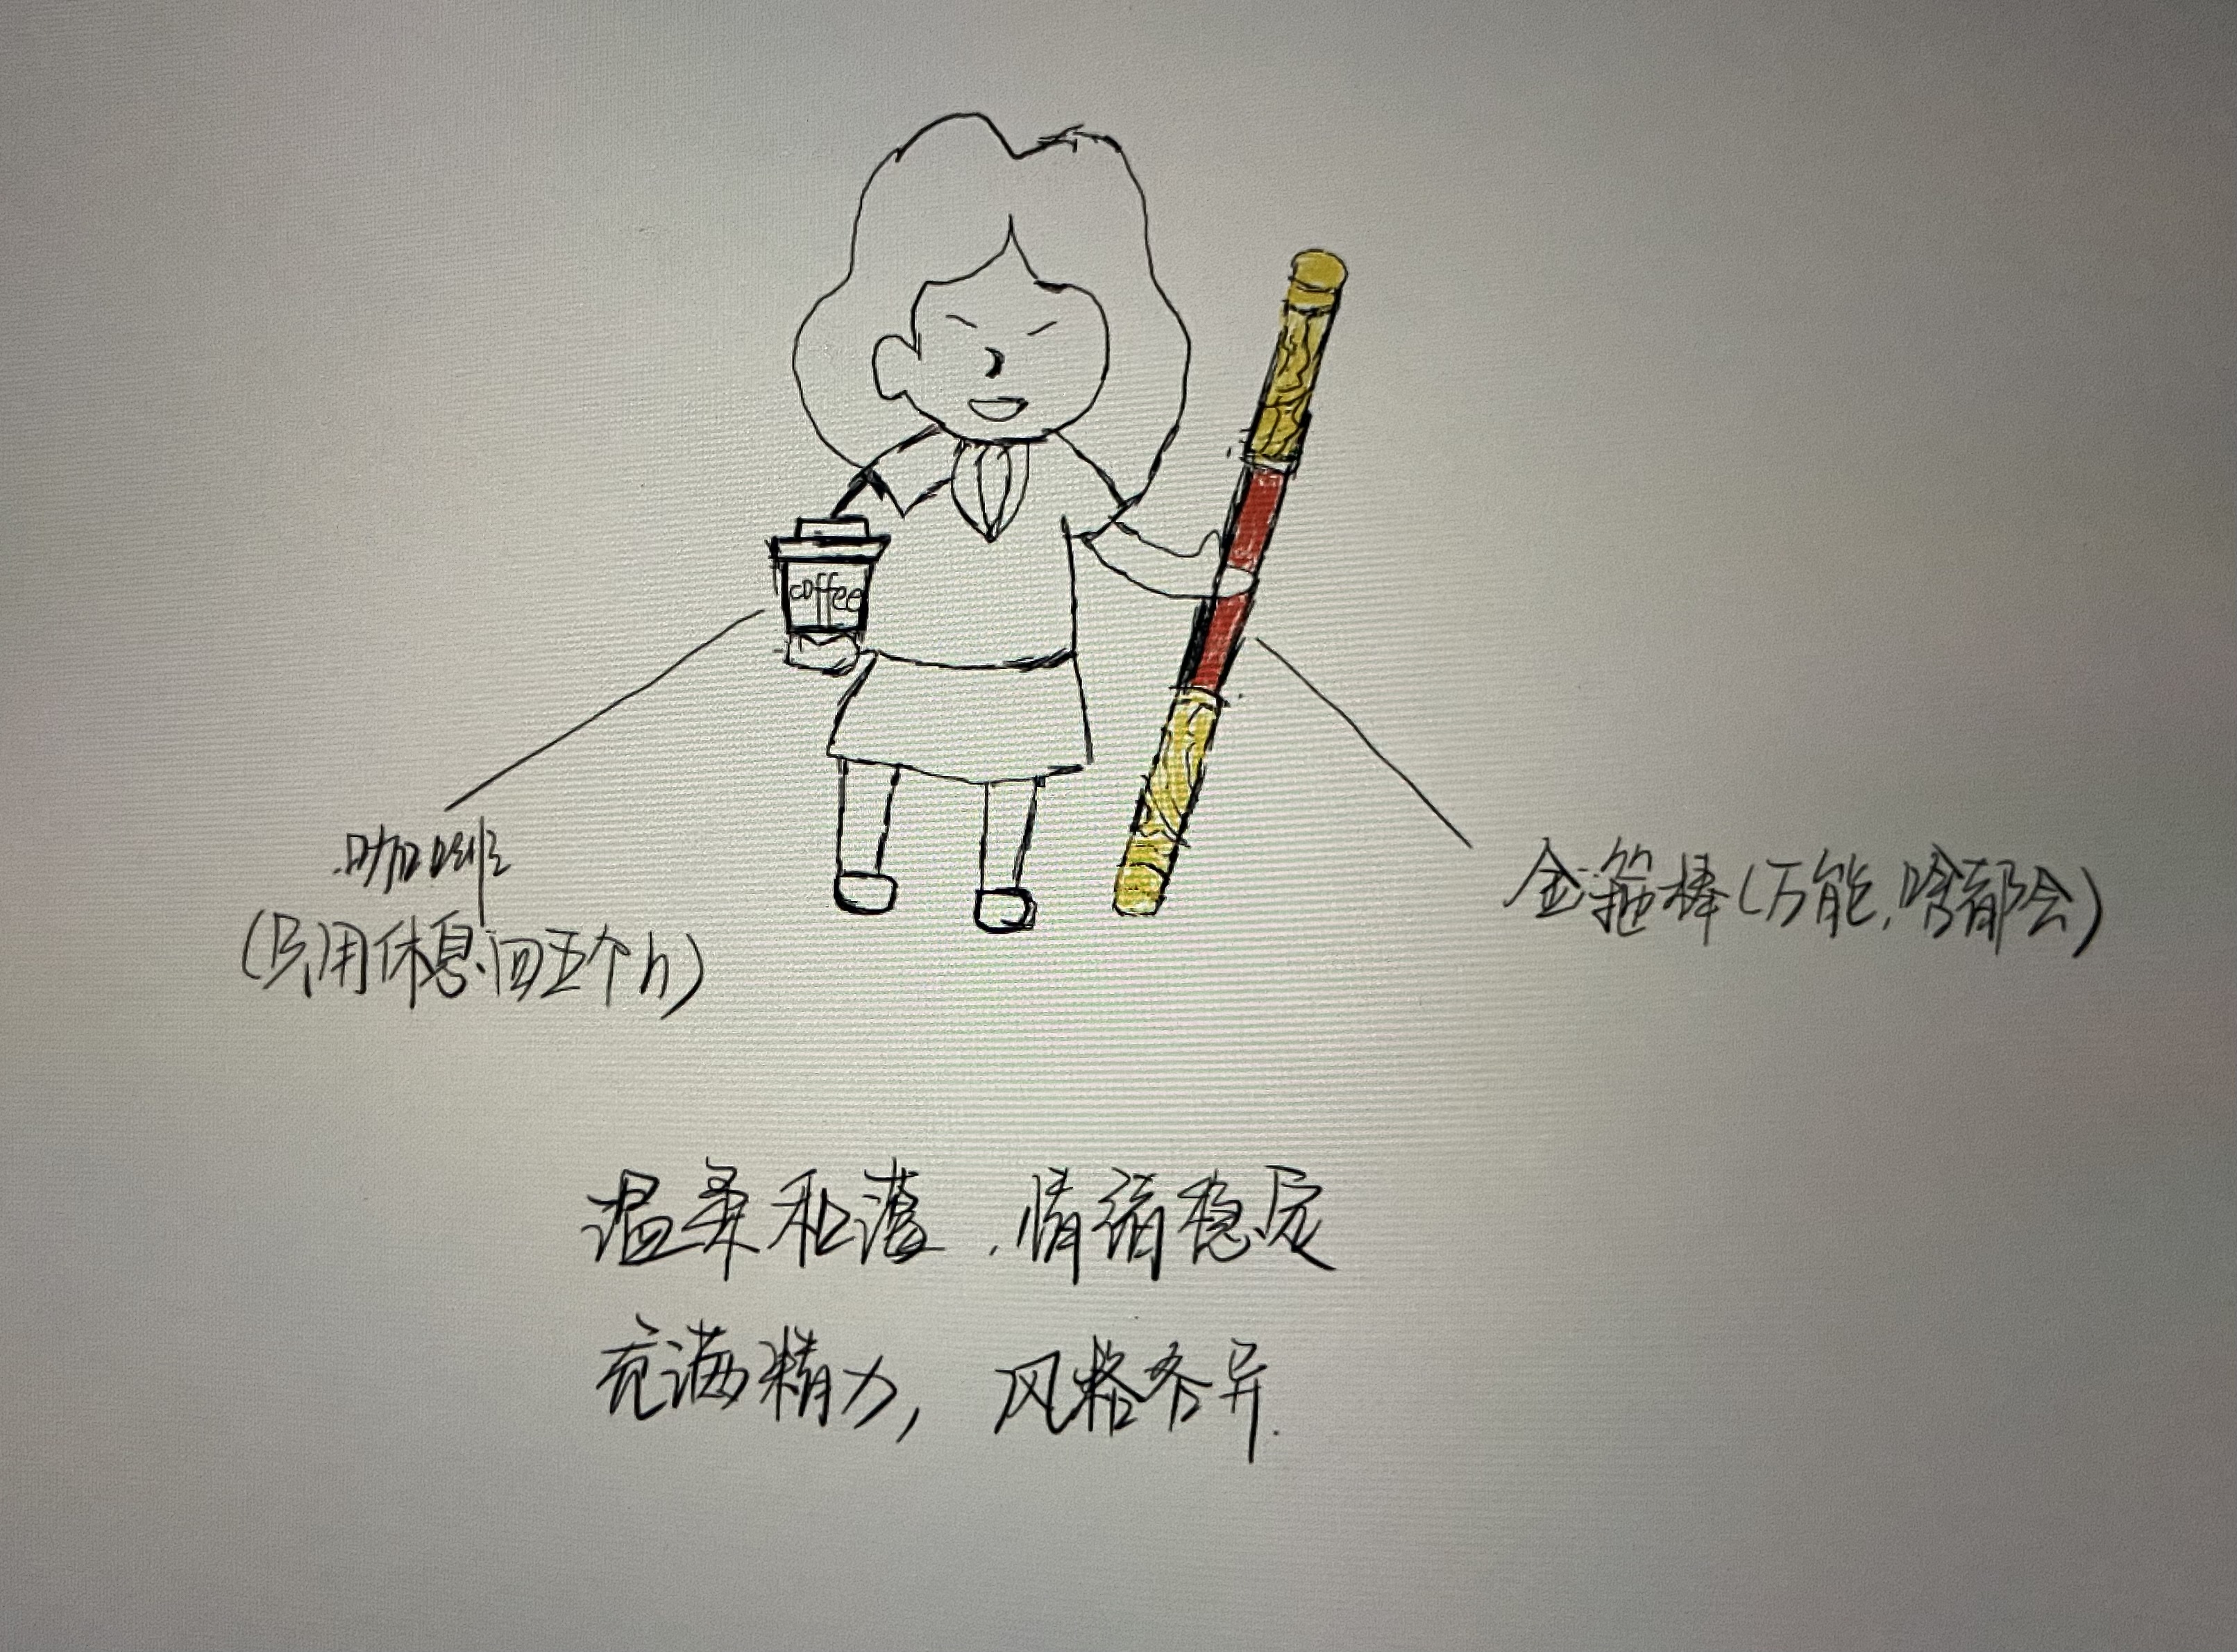 coffee
咖啡
(只用休息四五个h)
金箍棒(万能,啥都会)
温柔和蔼,情绪稳定
充满精力,风格各异.